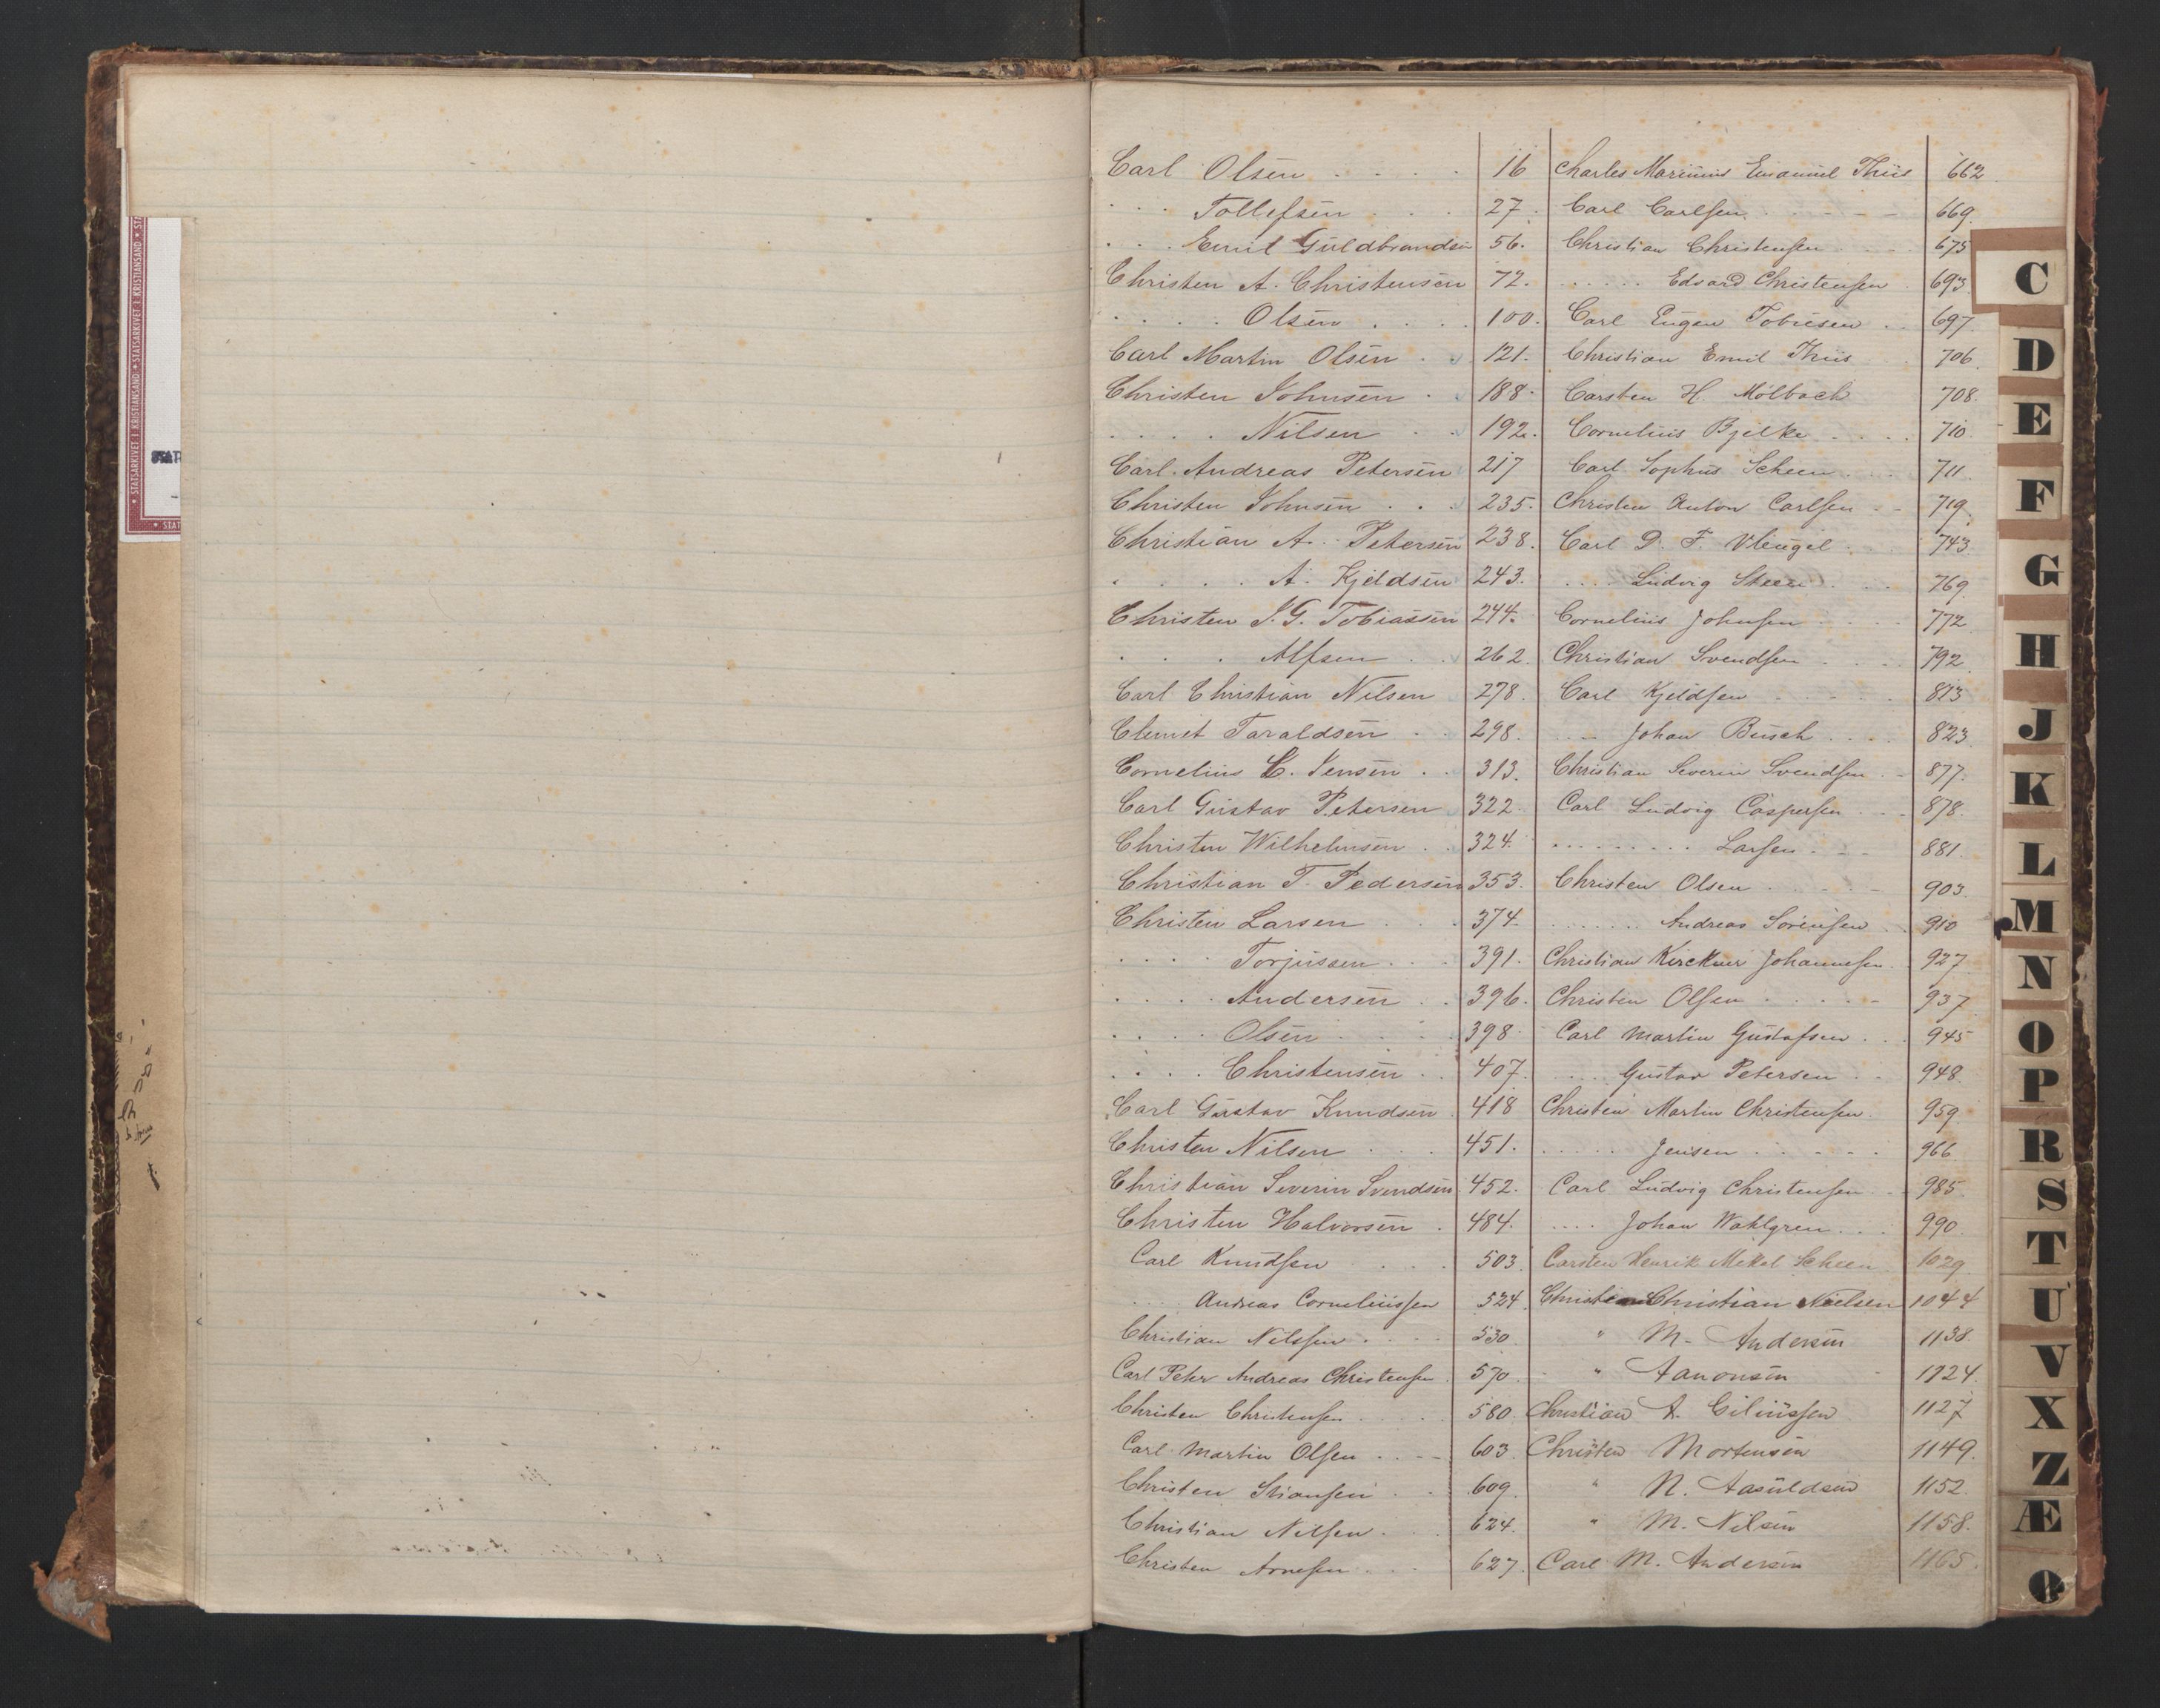 Carl Olsen . . . . 16
. . . Tollefsen . . . 27.
. . . Emil Guldbrandsen 56.
Christen A. Christensen 72.
. . . . Olsen . . . . 100.
Carl Martin Olsen . . 121.
Christen Johnsen . . 188.
. . . . Nilsen . . 192.
Carl Andreas Petersen 217
Christen Johnsen . . . 235.
Christian A. Petersen 238.
. . . . A. Kjeldsen 243.
Christen J. G. Tobiassen 244.
. . . Alfsen . . 262.
Carl Christian Nilsen 278.
Clemet Taraldsen . . 298.
Cornelius C. Jensen . . 313.
Carl Gustav Petersen 322.
Christen Wilhelmsen . . 324.
Christian T. Pedersen 353.
Christen Larsen . . . 374.
. . . . Torjussen . . . 391.
. . . . Andersen . . 396.
. . . . Olsen . . . . 398.
. . . . Christensen . . 407.
Carl Gustav Knudsen . 418
Christen Nilsen . . . 451.
Christian Severin Svendsen 452.
Christen Halvorsen . 484.
Carl Knudsen . . . 503.
. . . Andreas Corneliussen 524.
Christian Nilssen . . . . 530.
Carl Peter Andreas Christensen . 570.
Christen Christensen . . . . 580.
Carl Martin Olsen . . . . 603.
Christen Stiansen . . 609.
Christian Nilsen . . . 624.
Christen Arnesen . . . 627.
Charles Marinius Emanuel Thiis 662.
Carl Carlsen . . . . . 669.
Christian Christensen . . . 675
. . . . . . Edvard Christensen . 693.
Carl Eugen Tobiesen . . 697.
Christian Emil Thiis . . 706.
Carsten H. Mølbach 708.
Cornelius Bjelke . . . . 710.
Carl Sophus Scheen . . . 711.
Christen Anton Carlsen . . 719.
Carl D. F. Vleugel . . . 743.
. . . . Ludvig Steen . . . 769.
Cornelius Johnsen . . . . 772.
Christian Svendsen . . . . 792.
Carl Kjeldsen . . . . 813
. . . . Johan Busch . . . . 823.
Christian Severin Svendsen . . 877.
Carl Ludvig Caspersen . . . 878.
. . . . . . . . . Larsen . . . 881.
Christen Olsen . . . . . 903.
. . . . . . . Andreas Sørensen . . 910
Christian Kirchner Johannesen . . 927.
Christen Olsen . . . . . 937
Carl Martin Gustafsen . . . 945
. . . . Gustav Petersen . . 948.
Christen Martin Christensen . 959.
. . . . . Jensen . . . . . 966
Carl Ludvig Christensen . . . 985.
. . . . Johan Wahlgren . . . 990.
Carsten Henrik Mekel Scheen . 1029.
Christian Nielsen 1044
" M. Andersen 1138
" Aanonsen 1124.
Christian A. Ciliussen 1127
Christen Mortensen 1149.
" N. Aasuldsen 1152.
" M. Nilsen 1158.
Carl M. Andersen 1165.
C
D
E
F
G
H
J
K
L
M
N
O
P
R
S
T
U
V
X
Z
Æ
Ø
STATSARKIVET I KRISTIANSAND